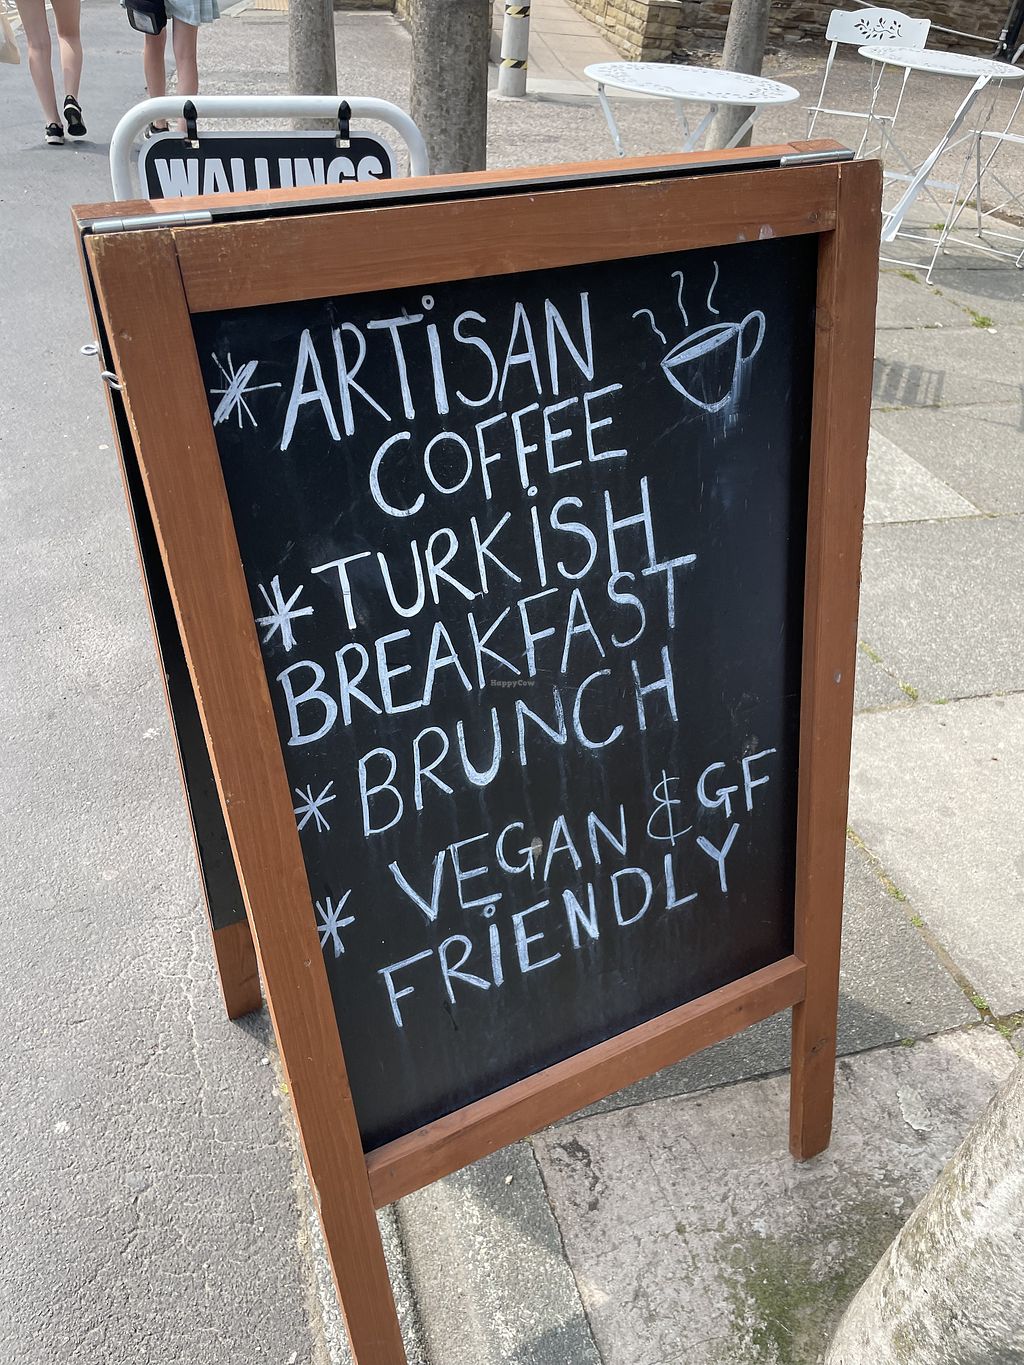 WALLINGS
* ARTiSAN
COFFEE
* TURKiSH
BREAKFAST
* BRUNCH
VEGAN & GF
* FRiENDLY
HappyCow